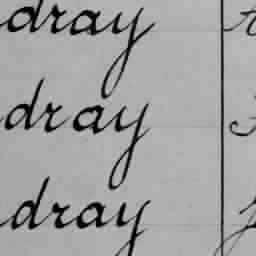 dray
dray
dray